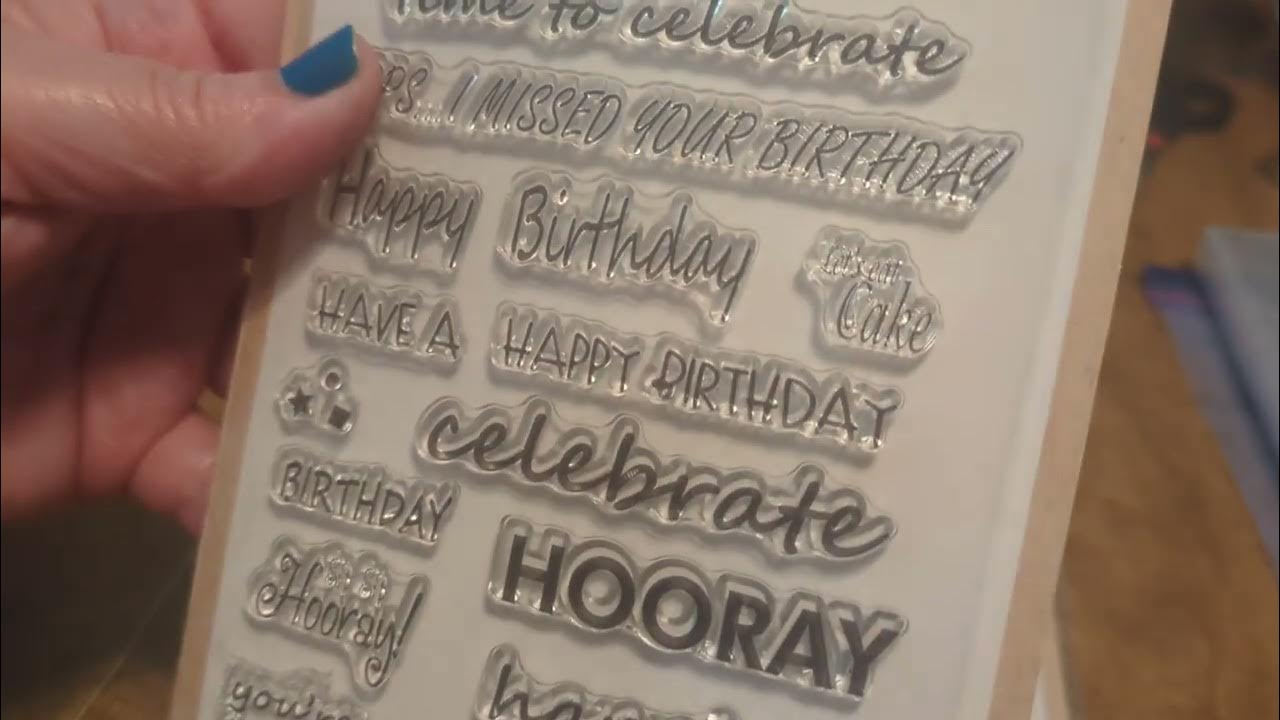 time to celebrate
PS... I MISSED YOUR BIRTHDAY
Happy Birthday
Let's eat
Cake
HAVE A
HAPPY BIRTHDAY
celebrate
BIRTHDAY
HOORAY
Hooray!
you're